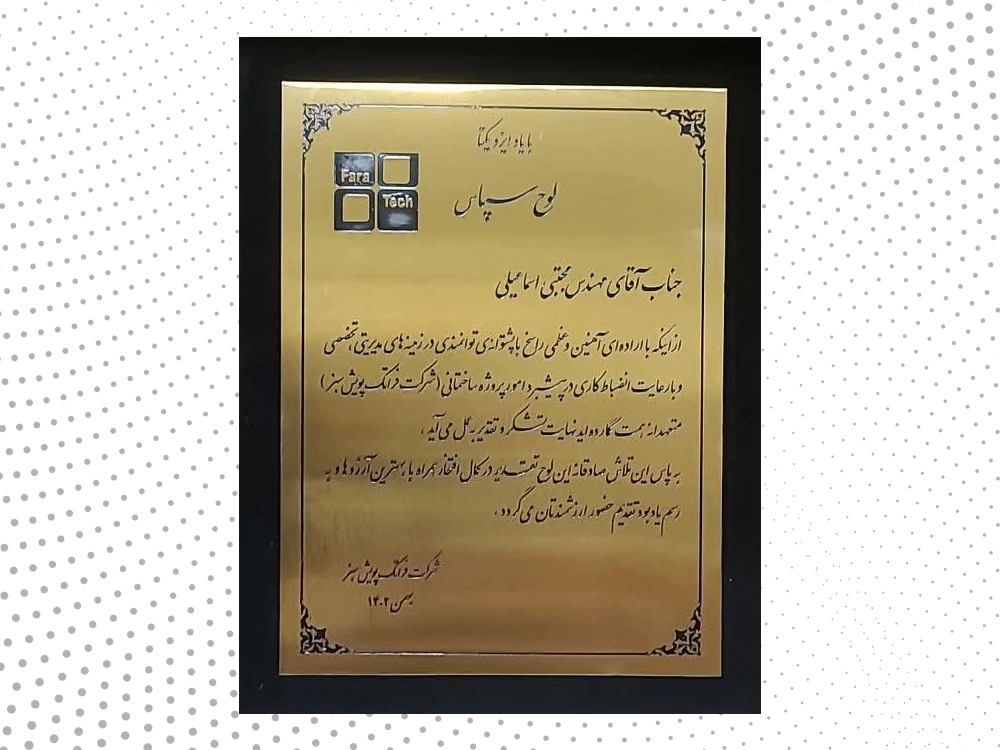 با یاد ایزد یکتا
Fara
Tech
لوح سپاس
جناب آقای مهندس مجتبی اسماعیلی
از اینکه با اراده‌ای آهنین و عزمی راسخ با پشتوانه‌ی توانمندی در زمینه‌های مدیریتی، تخصصی
و با رعایت انضباط کاری در پیشبرد امور پروژه ساختمانی (شرکت فراتک پویش سبز)
متعهدانه همت گمارده اید نهایت تشکر و تقدیر به عمل می‌آید .
به پاس این تلاش صادقانه این لوح تقدیر در کمال افتخار همراه با بهترین آرزوها و به
رسم یادبود تقدیم حضور ارزشمندتان می‌گردد .
شرکت فراتک پویش سبز
بهمن ۱۴۰۲